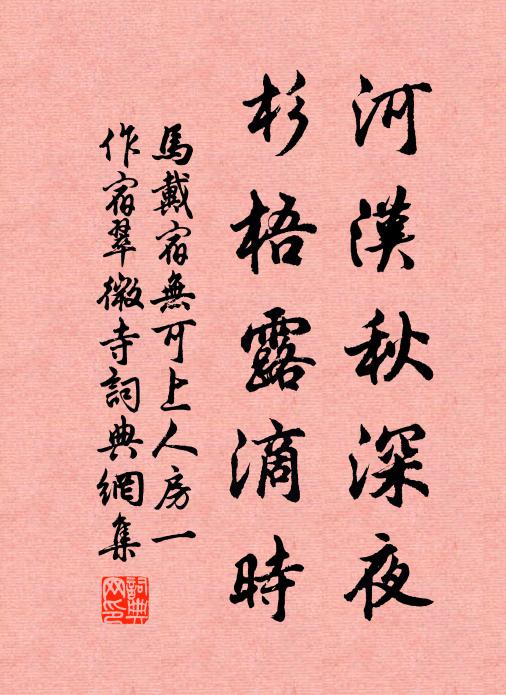 河漢秋深夜
杉梧露滴時
馬戴宿無可上人房一
作宿翠微寺詞典網集
詞典網印